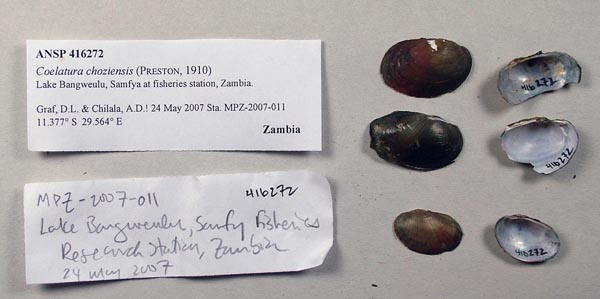 ANSP 416272
Coelatura choziensis (PRESTON, 1910)
Lake Bangweulu, Samfya at fisheries station, Zambia.
Graf, D.L. & Chilala, A.D.! 24 May 2007 Sta. MPZ-2007-011
11.377° S 29.564° E
Zambia
MPZ-2007-011 416272
Lake Bangweulu, Samfy Fisheries
Research Station, Zambia
24 May 2007
416272
416272
416272